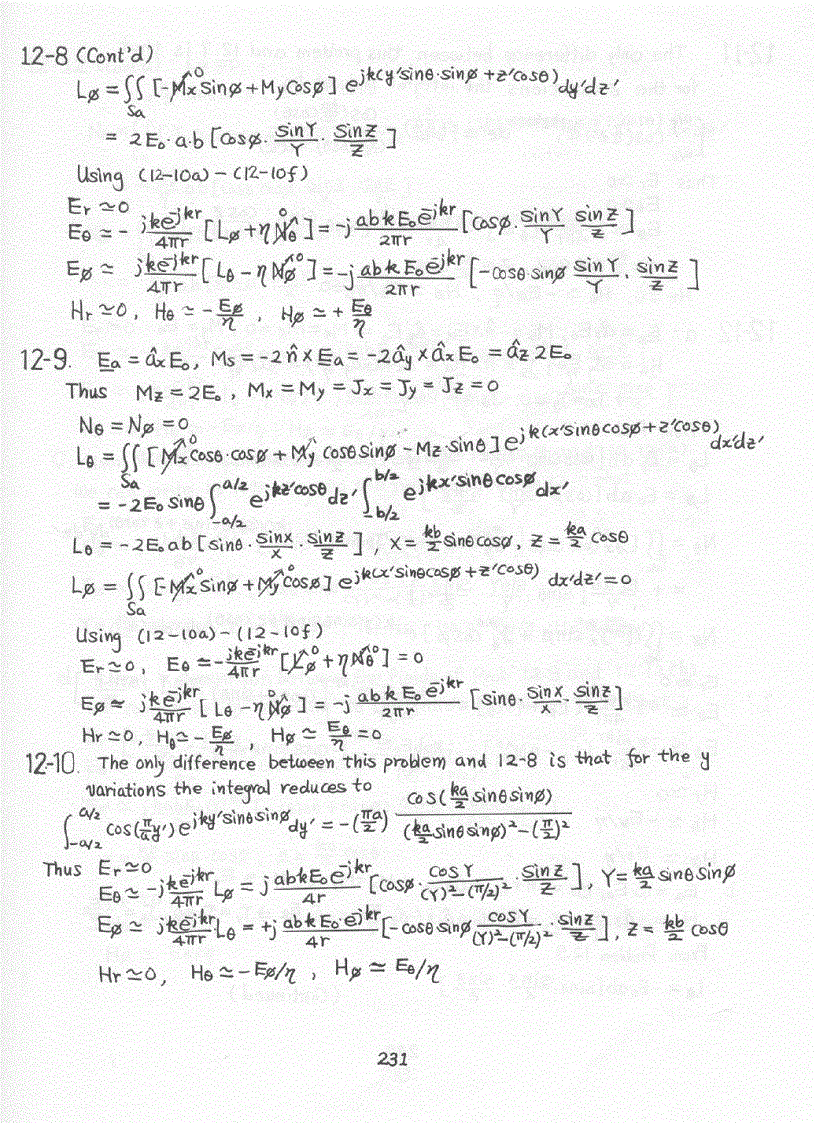 12-8 (Cont'd)
Lø = ∬_Sa [-Mx⁰ Sinø + My Cosø] e^{jk(y'sinθ·sinø + z'cosθ)} dy'dz'
= 2E₀·a·b [Cosø · SinY/Y · SinZ/Z]
Using (12-10a) - (12-10f)
Er ≃ 0
Eθ ≃ - jke^{-jkr}/4πr [Lø + ηNθ⁰] = -j abkE₀e^{-jkr}/2πr [Cosø · SinY/Y sinZ/Z]
Eø ≃ jke^{-jkr}/4πr [Lθ - ηNø⁰] = -j abkE₀e^{-jkr}/2πr [-cosθ·sinø SinY/Y · sinZ/Z]
Hr ≃ 0, Hθ ≃ - Eø/η , Hø ≃ + Eθ/η
12-9. Ea = âx E₀, Ms = -2 n̂ × Ea = -2ây × âx E₀ = âz 2E₀
Thus Mz = 2E₀, Mx = My = Jx = Jy = Jz = 0
Nθ = Nø = 0
Lθ = ∬_Sa [Mx⁰ cosθ·cosø + My cosθ sinø - Mz·sinθ] e^{jk(x'sinθcosø + z'cosθ)} dx'dz'
= -2E₀ sinθ ∫_{-a/2}^{a/2} e^{jkz'cosθ} dz' ∫_{-b/2}^{b/2} e^{jkx'sinθcosø} dx'
Lθ = -2E₀ab [sinθ · sinX/X · sinZ/Z] , X = kb/2 sinθcosø, Z = ka/2 cosθ
Lø = ∬_Sa [-Mx⁰ sinø + My⁰ cosø] e^{jk(x'sinθcosø + z'cosθ)} dx'dz' = 0
Using (12-10a) - (12-10f)
Er ≃ 0, Eθ ≃ - jke^{-jkr}/4πr [Lø⁰ + ηNθ⁰] = 0
Eø ≃ jke^{-jkr}/4πr [Lθ - ηNø⁰] = -j abkE₀e^{-jkr}/2πr [sinθ · sinX/X sinZ/Z]
Hr ≃ 0, Hθ ≃ - Eø/η , Hø ≃ Eθ/η = 0
12-10. The only difference between this problem and 12-8 is that for the y
variations the integral reduces to
∫_{-a/2}^{a/2} cos(π/a y') e^{jky'sinθsinø} dy' = -(πa/2) cos(ka/2 sinθsinø) / ((ka/2 sinθsinø)² - (π/2)²)
Thus Er ≃ 0
Eθ ≃ -j ke^{-jkr}/4πr Lø = j abkE₀e^{-jkr}/4r [cosø · cosY/((Y)²-(π/2)²) · sinZ/Z], Y = ka/2 sinθ sinø
Eø ≃ jke^{-jkr}/4πr Lθ = +j abkE₀·e^{-jkr}/4r [-cosθ sinø cosY/((Y)²-(π/2)²) · sinZ/Z], Z = kb/2 cosθ
Hr ≃ 0, Hθ ≃ -Eø/η , Hø ≃ Eθ/η
231